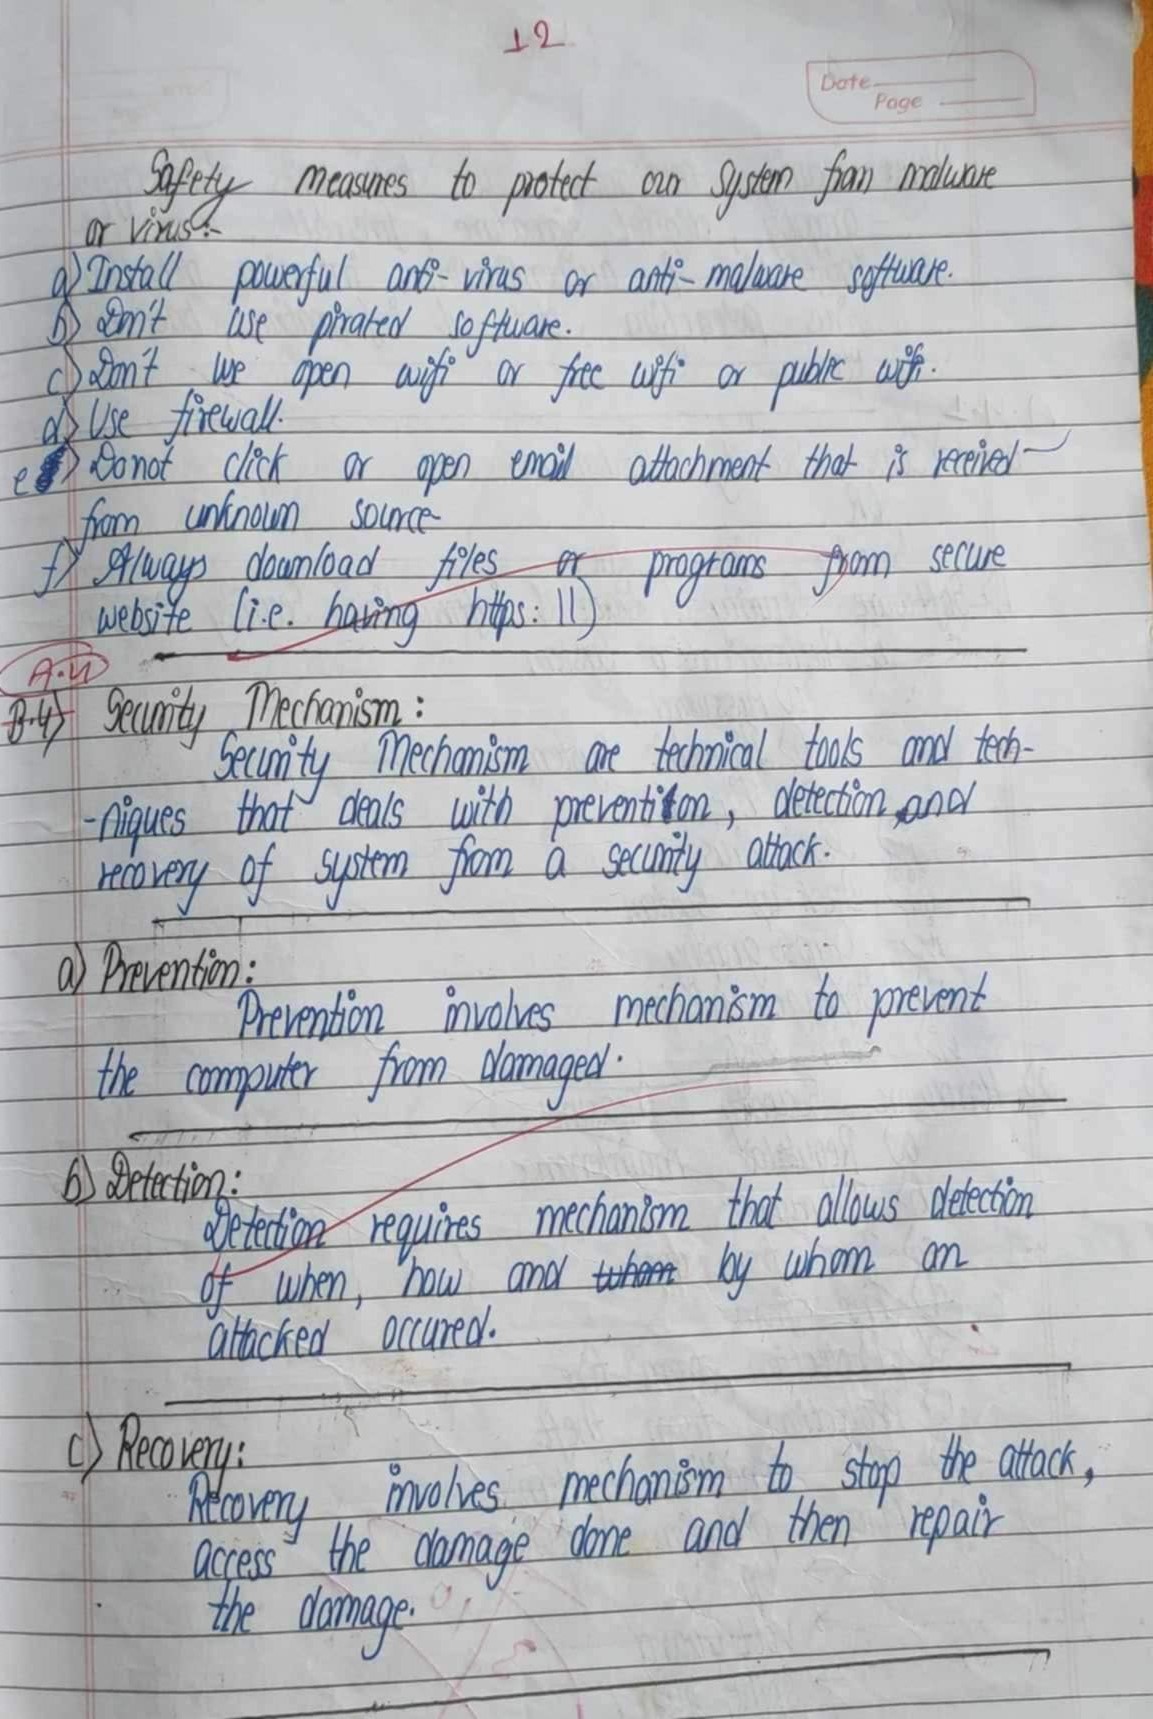 12
Date
Page
Safety measures to protect our system from malware
or virus:-
a) Install powerful anti-virus or anti-malware software.
b) Don't use pirated software.
c) Don't use open wifi or free wifi or public wifi.
d) Use firewall.
e) Donot click or open email attachment that is received
from unknown source
f) Always download files or programs from secure
website (i.e. having https: ||)
A.4
B.4) Security Mechanism:
Security Mechanism are technical tools and tech-
-niques that deals with prevention, detection and
recovery of system from a security attack.
a) Prevention:
Prevention involves mechanism to prevent
the computer from damaged.
b) Detection:
Detection requires mechanism that allows detection
of when, how and whom by whom an
attacked occured.
c) Recovery:
Recovery involves mechanism to stop the attack,
access the damage done and then repair
the damage.